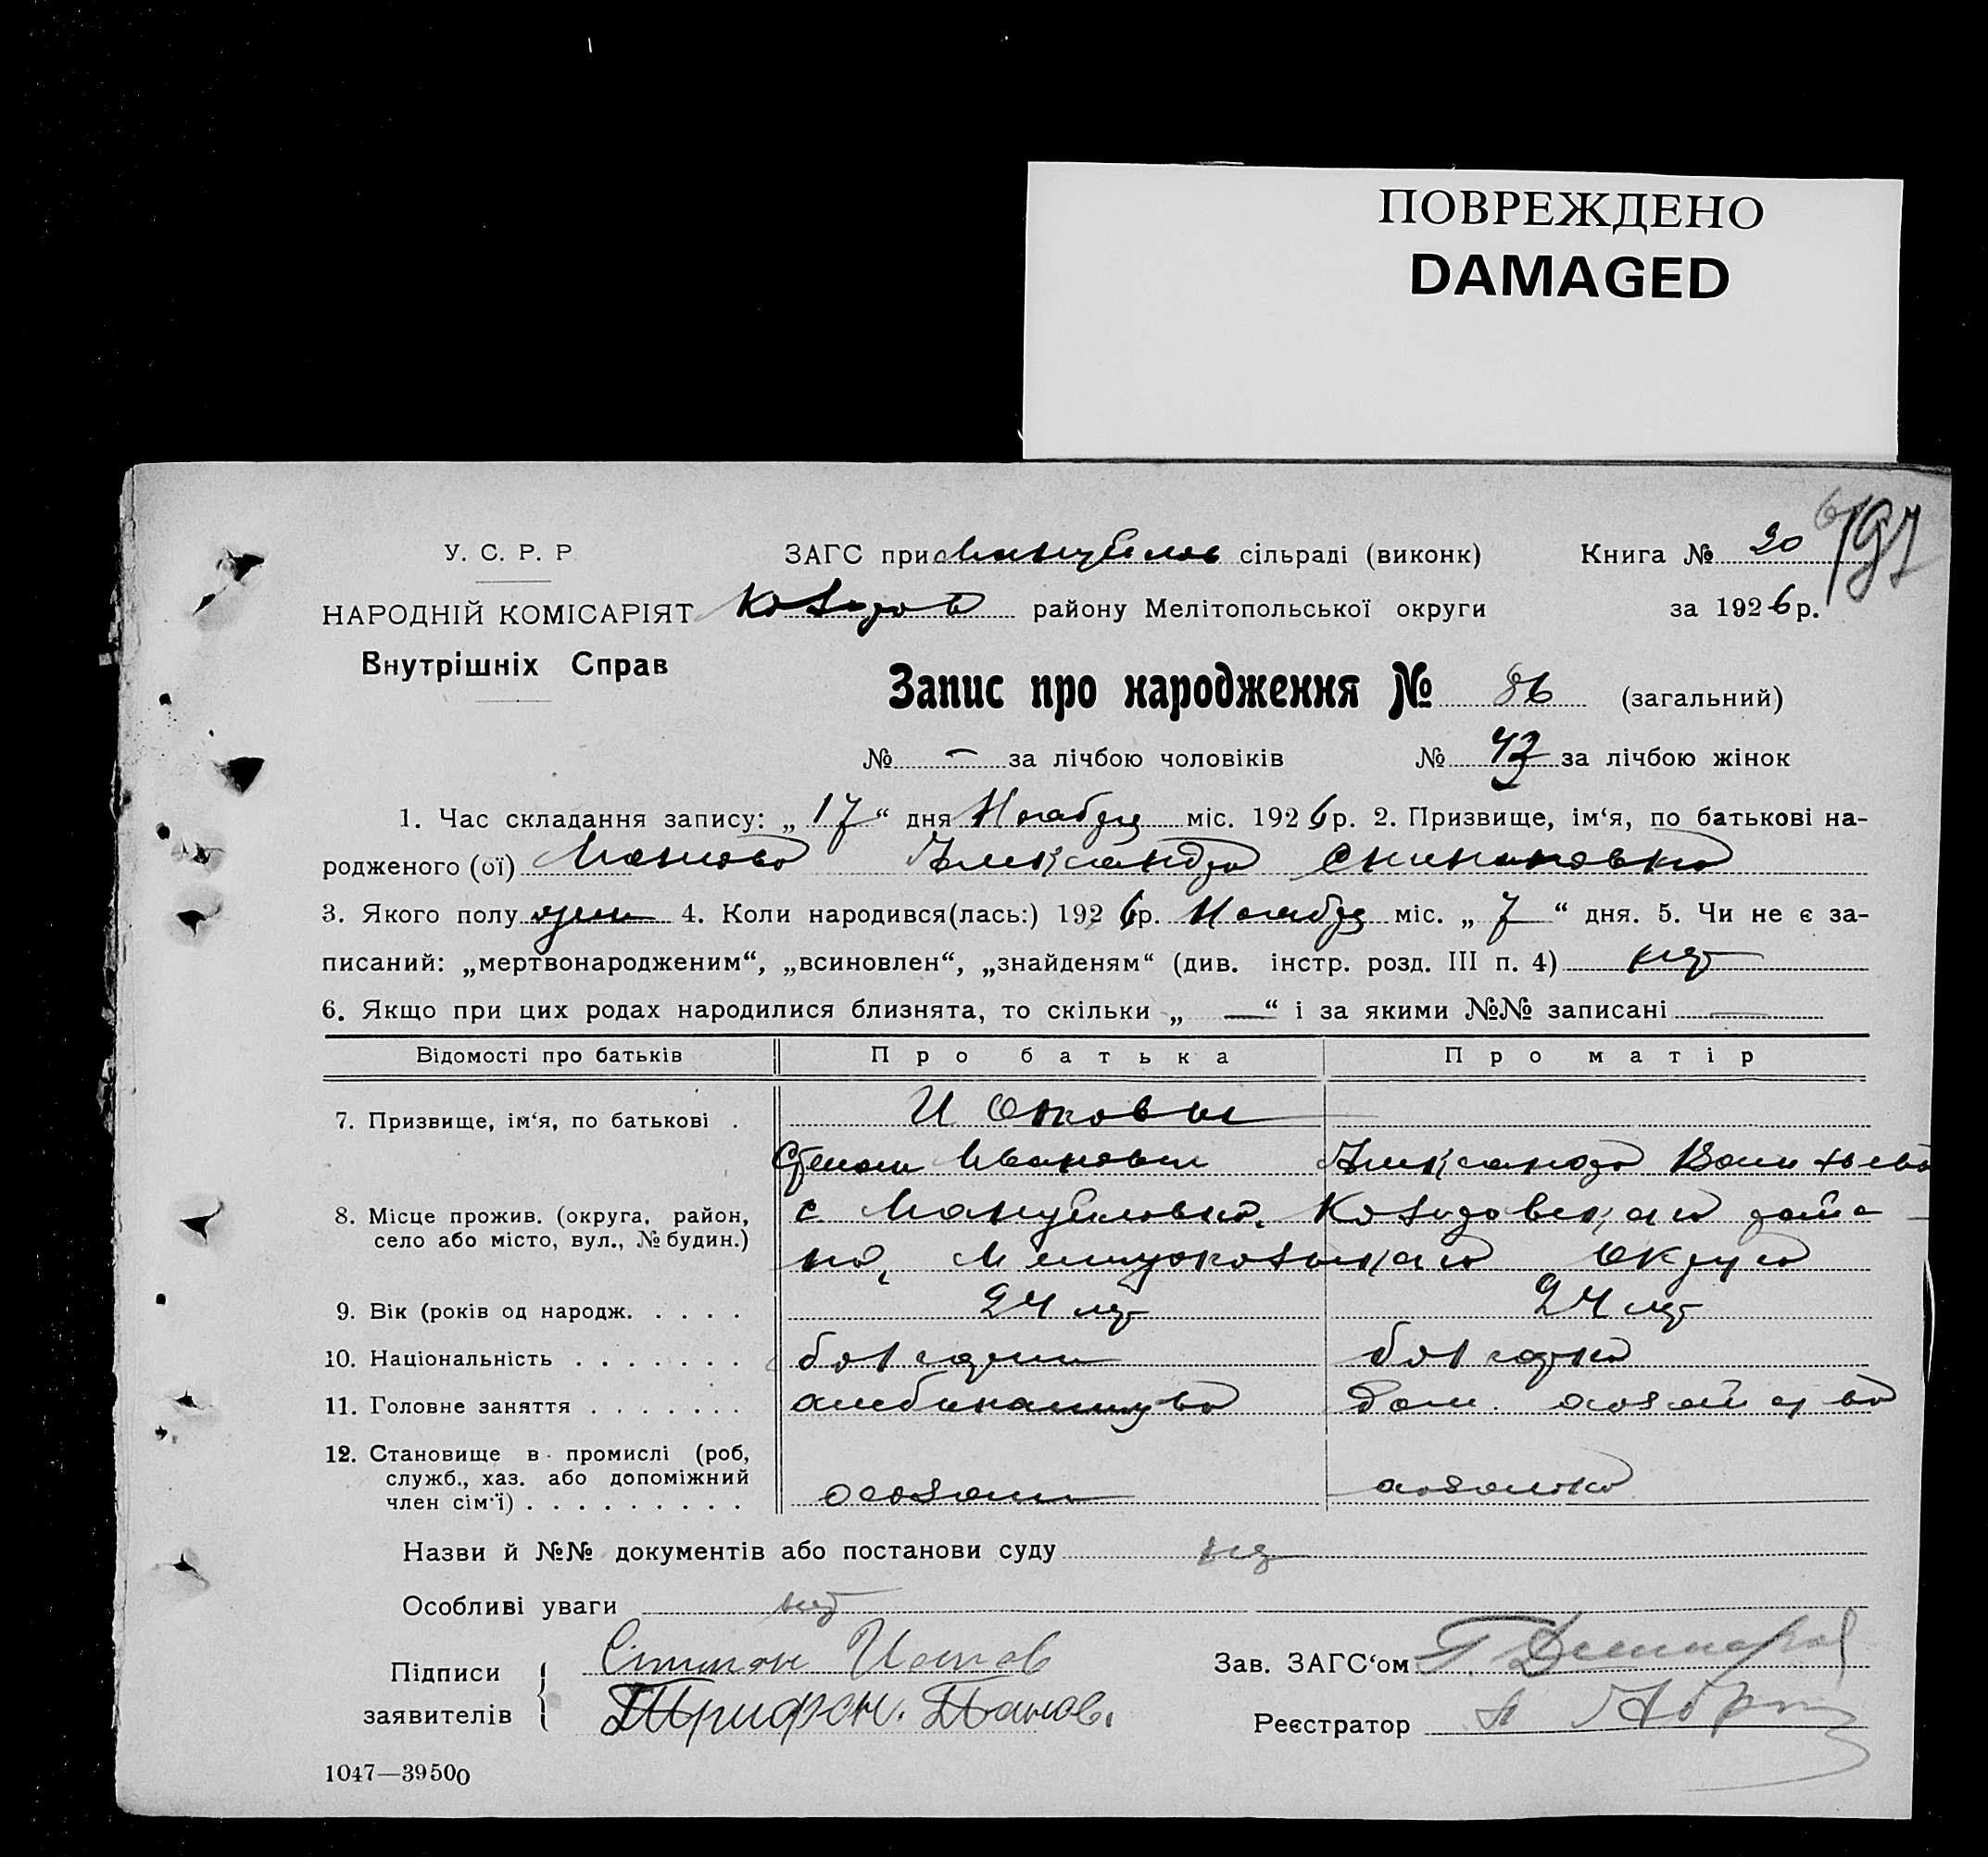 ПОВРЕЖДЕНО
DAMAGED
У. С. Р. Р.
ЗАГС при сільраді (виконк)
Книга № 20
197
НАРОДНІЙ КОМІСАРІЯТ
району Мелітопольської округи
за 1926 р.
Внутрішніх Справ
Запис про народження № 86 (загальний)
№ — за лічбою чоловіків № 43 за лічбою жінок
1. Час складання запису: „17“ дня Ноября міс. 1926 р. 2. Призвище, ім‘я, по батькові на-
родженого (ої) Александра
3. Якого полу жен 4. Коли народився(лась:) 1926 р. Ноября міс. „7“ дня. 5. Чи не є за-
писаний: „мертвонародженим“, „всиновлен“, „знайденям“ (див. інстр. розд. III п. 4) нет
6. Якщо при цих родах народилися близнята, то скільки „ — “ і за якими №№ записані —
Відомості про батьків Про батька Про матір
7. Призвище, ім‘я, по батькові .
Степан Иванович Александра
8. Місце прожив. (округа, район,
село або місто, вул., № будин.)
с. Мануйловка,
на, Мелитопольского Округа
9. Вік (років од народж. . . . . 24 лет 24 лет
10. Національність . . . . . . . болгарин болгарка
11. Головне заняття . . . . . . . хлебопашество дом. хозяйство
12. Становище в промислі (роб,
служб., хаз. або допоміжний
член сім‘ї) . . . . . . . . . хозяин хозяйка
Назви й №№ документів або постанови суду нет
Особливі уваги нет
Підписи
заявителів
Степан
Трифон. Панов.
Зав. ЗАГС‘ом
Реєстратор
1047—39500